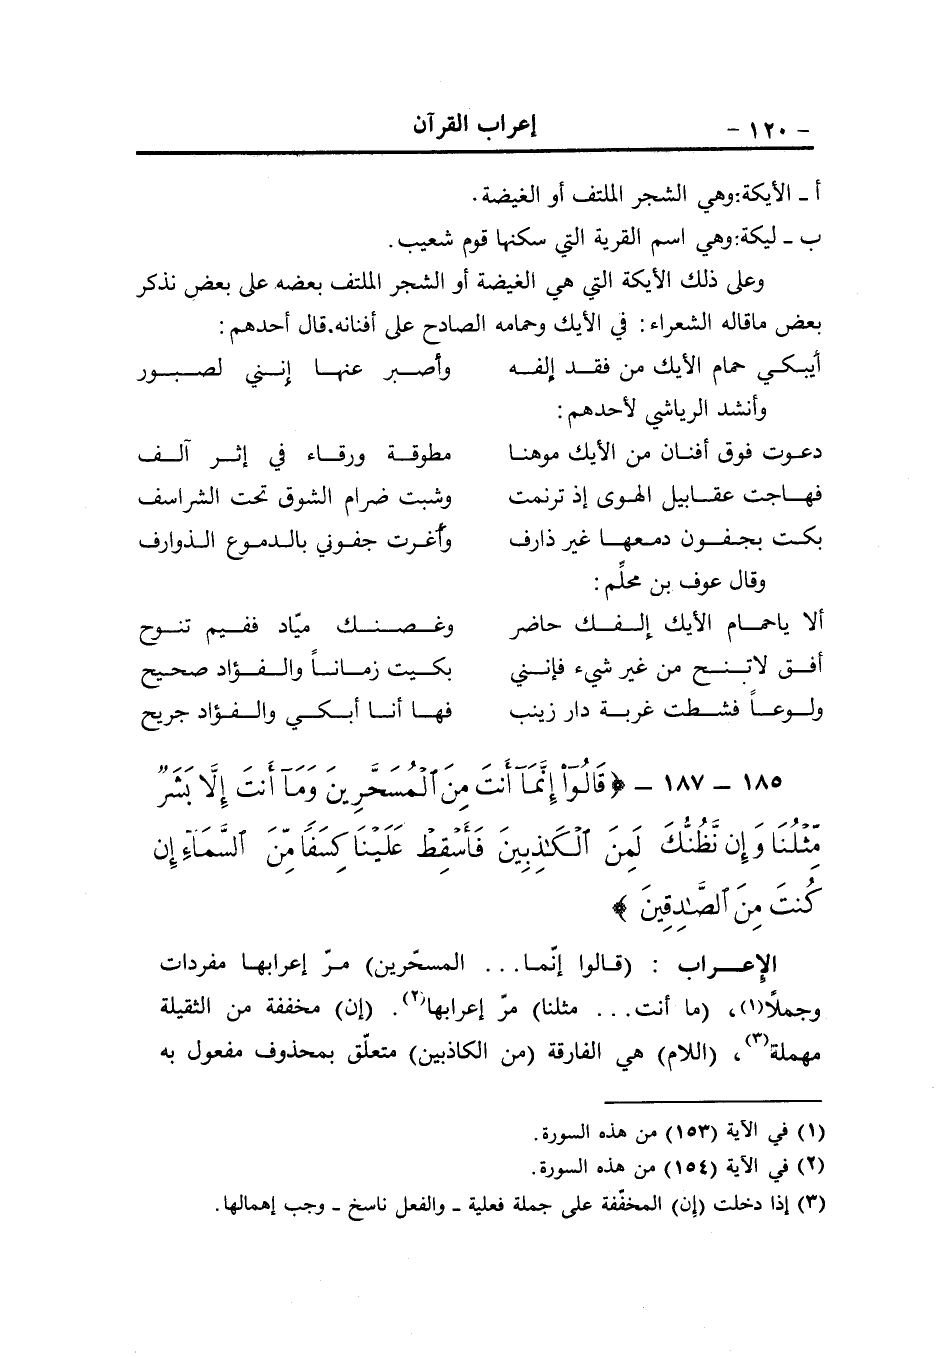 - ١٢٠ - إعراب القرآن
أ ـ الأيكة:وهي الشجر الملتف أو الغيضة.
ب ـ ليكة:وهي اسم القرية التي سكنها قوم شعيب.
وعلى ذلك الأيكة التي هي الغيضة أو الشجر الملتف بعضه على بعض نذكر
بعض ماقاله الشعراء: في الأيك وحمامه الصادح على أفنانه.قال أحدهم:
أيبكي حمام الأيك من فقد إلفه وأصبر عنها إنني لصبور
وأنشد الرياشي لأحدهم:
دعوت فوق أفنان من الأيك موهنا مطوقة ورقاء في إثر آلف
فهاجت عقابيل الهوى إذ ترنمت وشبت ضرام الشوق تحت الشراسف
بكت بجفون دمعها غير ذارف وأغرت جفوني بالدموع الذوارف
وقال عوف بن محلّم:
ألا ياحمام الأيك إلفك حاضر وغصنك ميّاد ففيم تنوح
أفق لاتنح من غير شيء فإنني بكيت زماناً والفؤاد صحيح
ولوعاً فشطت غربة دار زينب فها أنا أبكي والفؤاد جريح
١٨٥ - ١٨٧ - ﴿قَالُوٓا۟ إِنَّمَآ أَنتَ مِنَ ٱلْمُسَحَّرِينَ وَمَآ أَنتَ إِلَّا بَشَرٌ
مِّثْلُنَا وَإِن نَّظُنُّكَ لَمِنَ ٱلْكَٰذِبِينَ فَأَسْقِطْ عَلَيْنَا كِسَفًا مِّنَ ٱلسَّمَآءِ إِن
كُنتَ مِنَ ٱلصَّٰدِقِينَ﴾
الإعراب: (قالوا إنّما... المسحّرين) مرّ إعرابها مفردات
وجملاً(١)، (ما أنت... مثلنا) مرّ إعرابها(٢). (إن) مخففة من الثقيلة
مهملة(٣)، (اللام) هي الفارقة (من الكاذبين) متعلّق بمحذوف مفعول به
(١) في الآية (١٥٣) من هذه السورة.
(٢) في الآية (١٥٤) من هذه السورة.
(٣) إذا دخلت (إن) المخفّفة على جملة فعلية ـ والفعل ناسخ ـ وجب إهمالها.